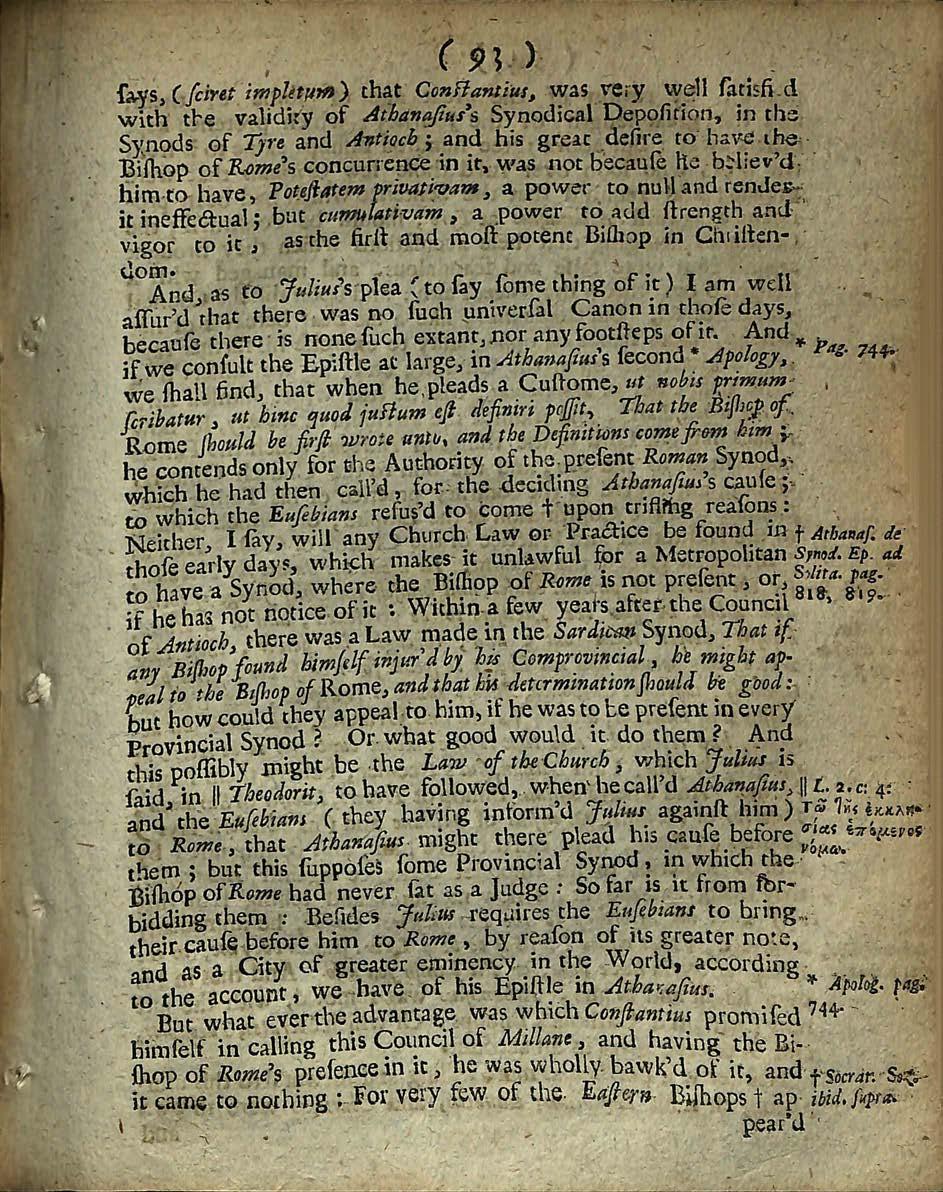 ( 93 )
ſays, (ſciret impletum) that Conſtantius, was very well ſatisfi d
with the validity of Athanaſius's Synodical Depoſition, in the
Synods of Tyre and Antioch ; and his great deſire to have the
Biſhop of Rome's concurrence in it, was not becauſe he believ'd
him to have, Poteſtatem privativam, a power to null and render
it ineffectual ; but cumulativam, a power to add ſtrength and
vigor to it, as the firſt and moſt potent Biſhop in Chriſten-
dom.
And, as to Julius's plea (to ſay ſome thing of it) I am well
aſſur'd that there was no ſuch univerſal Canon in thoſe days,
becauſe there is none ſuch extant, nor any footſteps of it. And
if we conſult the Epiſtle at large, in Athanaſius's ſecond * Apology,
* Pag. 744.
we ſhall find, that when he pleads a Cuſtome, ut nobis primum
ſcribatur, ut hinc quod juſtum eſt definiri poſſit, That the Biſhop of
Rome ſhould be firſt wrote unto, and the Definitions come from him ;
he contends only for the Authority of the preſent Roman Synod,
which he had then call'd, for the deciding Athanaſius's cauſe ;
to which the Euſebians refus'd to come † upon trifling reaſons :
Neither, I ſay, will any Church Law or Practice be found in
thoſe early days, which makes it unlawful for a Metropolitan
to have a Synod, where the Biſhop of Rome is not preſent, or,
if he has not notice of it : Within a few years after the Council
† Athanaſ. de
Synod. Ep. ad
Solita. pag.
818, 819.
of Antioch, there was a Law made in the Sardican Synod, That if
any Biſhop found himſelf injur'd by his Comprovincial, he might ap-
peal to the Biſhop of Rome, and that his determination ſhould be good :
but how could they appeal to him, if he was to be preſent in every
Provincial Synod ? Or what good would it do them ? And
this poſſibly might be the Law of the Church, which Julius is
ſaid, in || Theodorit, to have followed, when he call'd Athanaſius,
and the Euſebians (they having inform'd Julius againſt him)
to Rome, that Athanaſius might there plead his cauſe before
them ; but this ſuppoſes ſome Provincial Synod, in which the
|| L. 2. c: 4:
Τῶ τῆς ἐκκλη-
σίας ἑπόμενος
νόμω.
Biſhop of Rome had never ſat as a Judge : So far is it from for-
bidding them : Beſides Julius requires the Euſebians to bring
their cauſe before him to Rome, by reaſon of its greater note,
and as a City of greater eminency in the World, according
to the account, we have of his Epiſtle in Athanaſius.
* Apolog. pag.
744.
But what ever the advantage was which Conſtantius promiſed
himſelf in calling this Council of Millane, and having the Bi-
ſhop of Rome's preſence in it, he was wholly bawk'd of it, and
it came to nothing : For very few of the Eaſtern Biſhops † ap
† Socrar. Soz.
ibid. ſupra.
pear'd